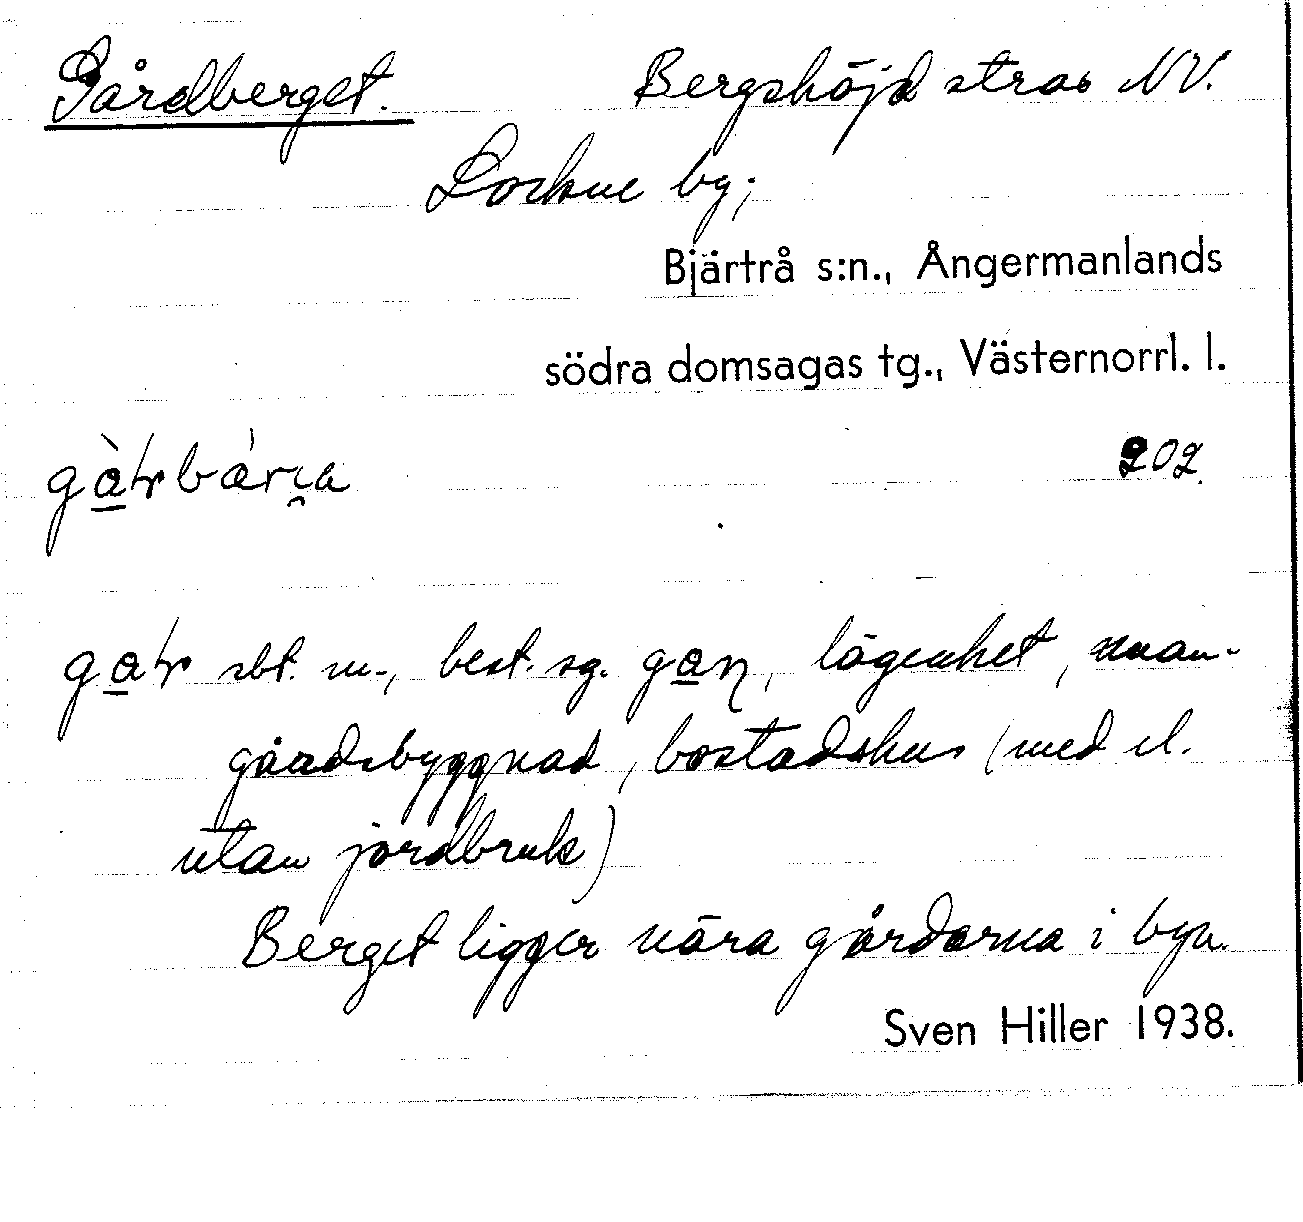 Gårdberget. Bergshöjd strax NV.
Lockne by;
Bjärtrå s:n., Ångermanlands
södra domsagas tg., Västernorrl. l.
202.
sbt. m., best. sg. lägenhet, man-
gårdsbyggnad, bostadshus (med el.
utan jordbruk)
Berget ligger nära gårdarna i byn.
Sven Hiller 1938.